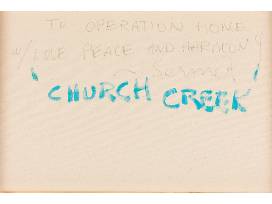 TO OPERATION HOME
W/ LOVE PEACE AND HARMONY
"CHURCH CREEK"